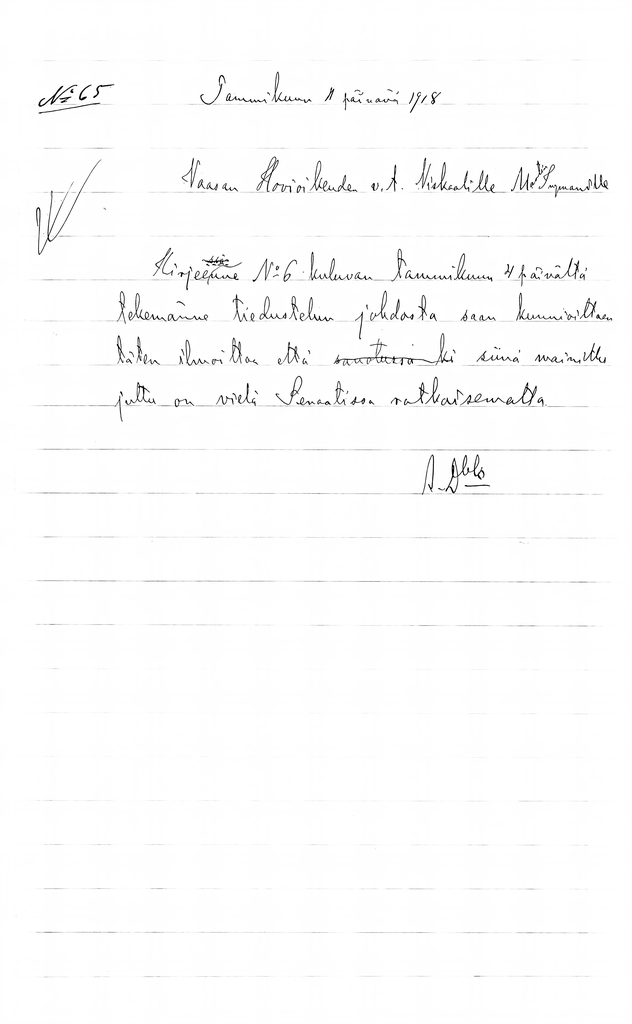 No 65 Tammikuun 11 päivänä 1918
Vaasan Hovioikeuden v.t. Viskaalille
Kirjeenne No 6 kuluvan tammikuun 4 päivältä
tekemänne tiedustelun johdosta saan kunnioittaen
täten ilmoittaa että siinä mainittu
juttu on vielä Senaatissa ratkaisematta.